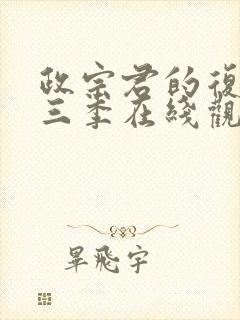 政宗君的復
三季在綫觀
畢飛宇